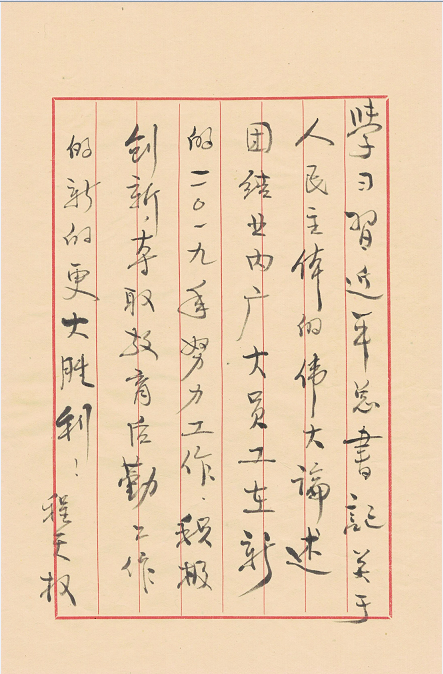 學习習近平总書記关于
人民主体的伟大論述
团结业内广大员工在新
的二〇一九年努力工作，积极
创新，夺取教育后勤工作
的新的更大胜利！
程天权